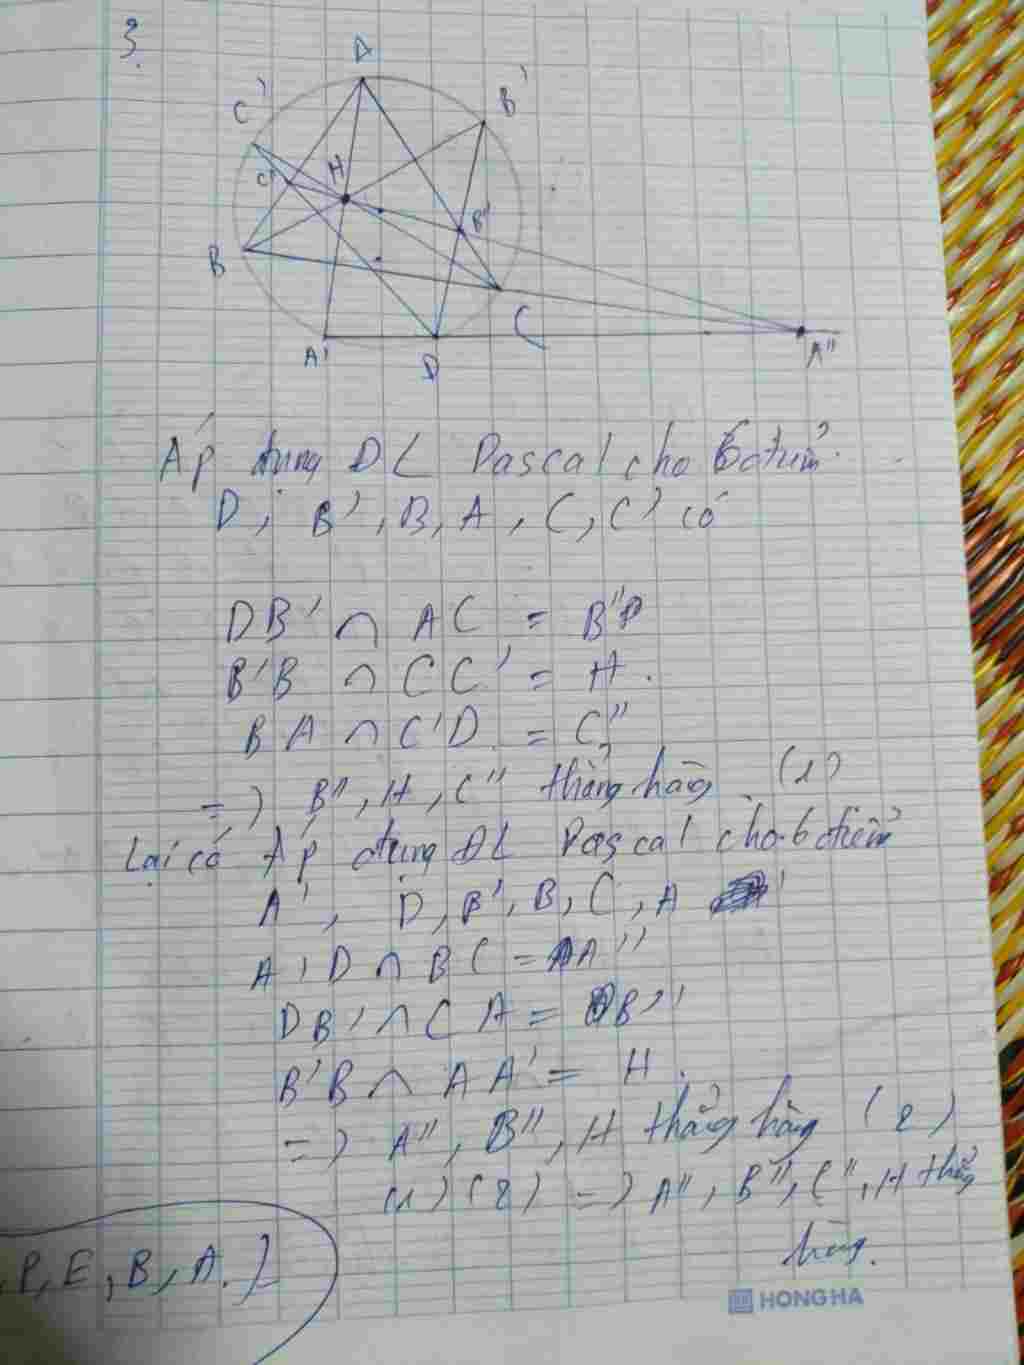 3.
A
C'
B'
H
C"
B"
B
C
A'
D
A"
Áp dụng ĐL Pascal cho 6 điểm
D, B', B, A, C, C' có
DB' ∩ AC = B"
B'B ∩ CC' = H.
BA ∩ C'D = C"
=) B", H, C" thẳng hàng (1)
Lại có Áp dụng ĐL Pascal cho 6 điểm
A', D, B', B, C, A
A'D ∩ BC = A"
DB' ∩ CA = B"
B'B ∩ AA' = H.
=) A", B", H thẳng hàng (2)
(1) (2) =) A", B", C", H thẳng
hàng.
P, E, B, A.)
HONG HA